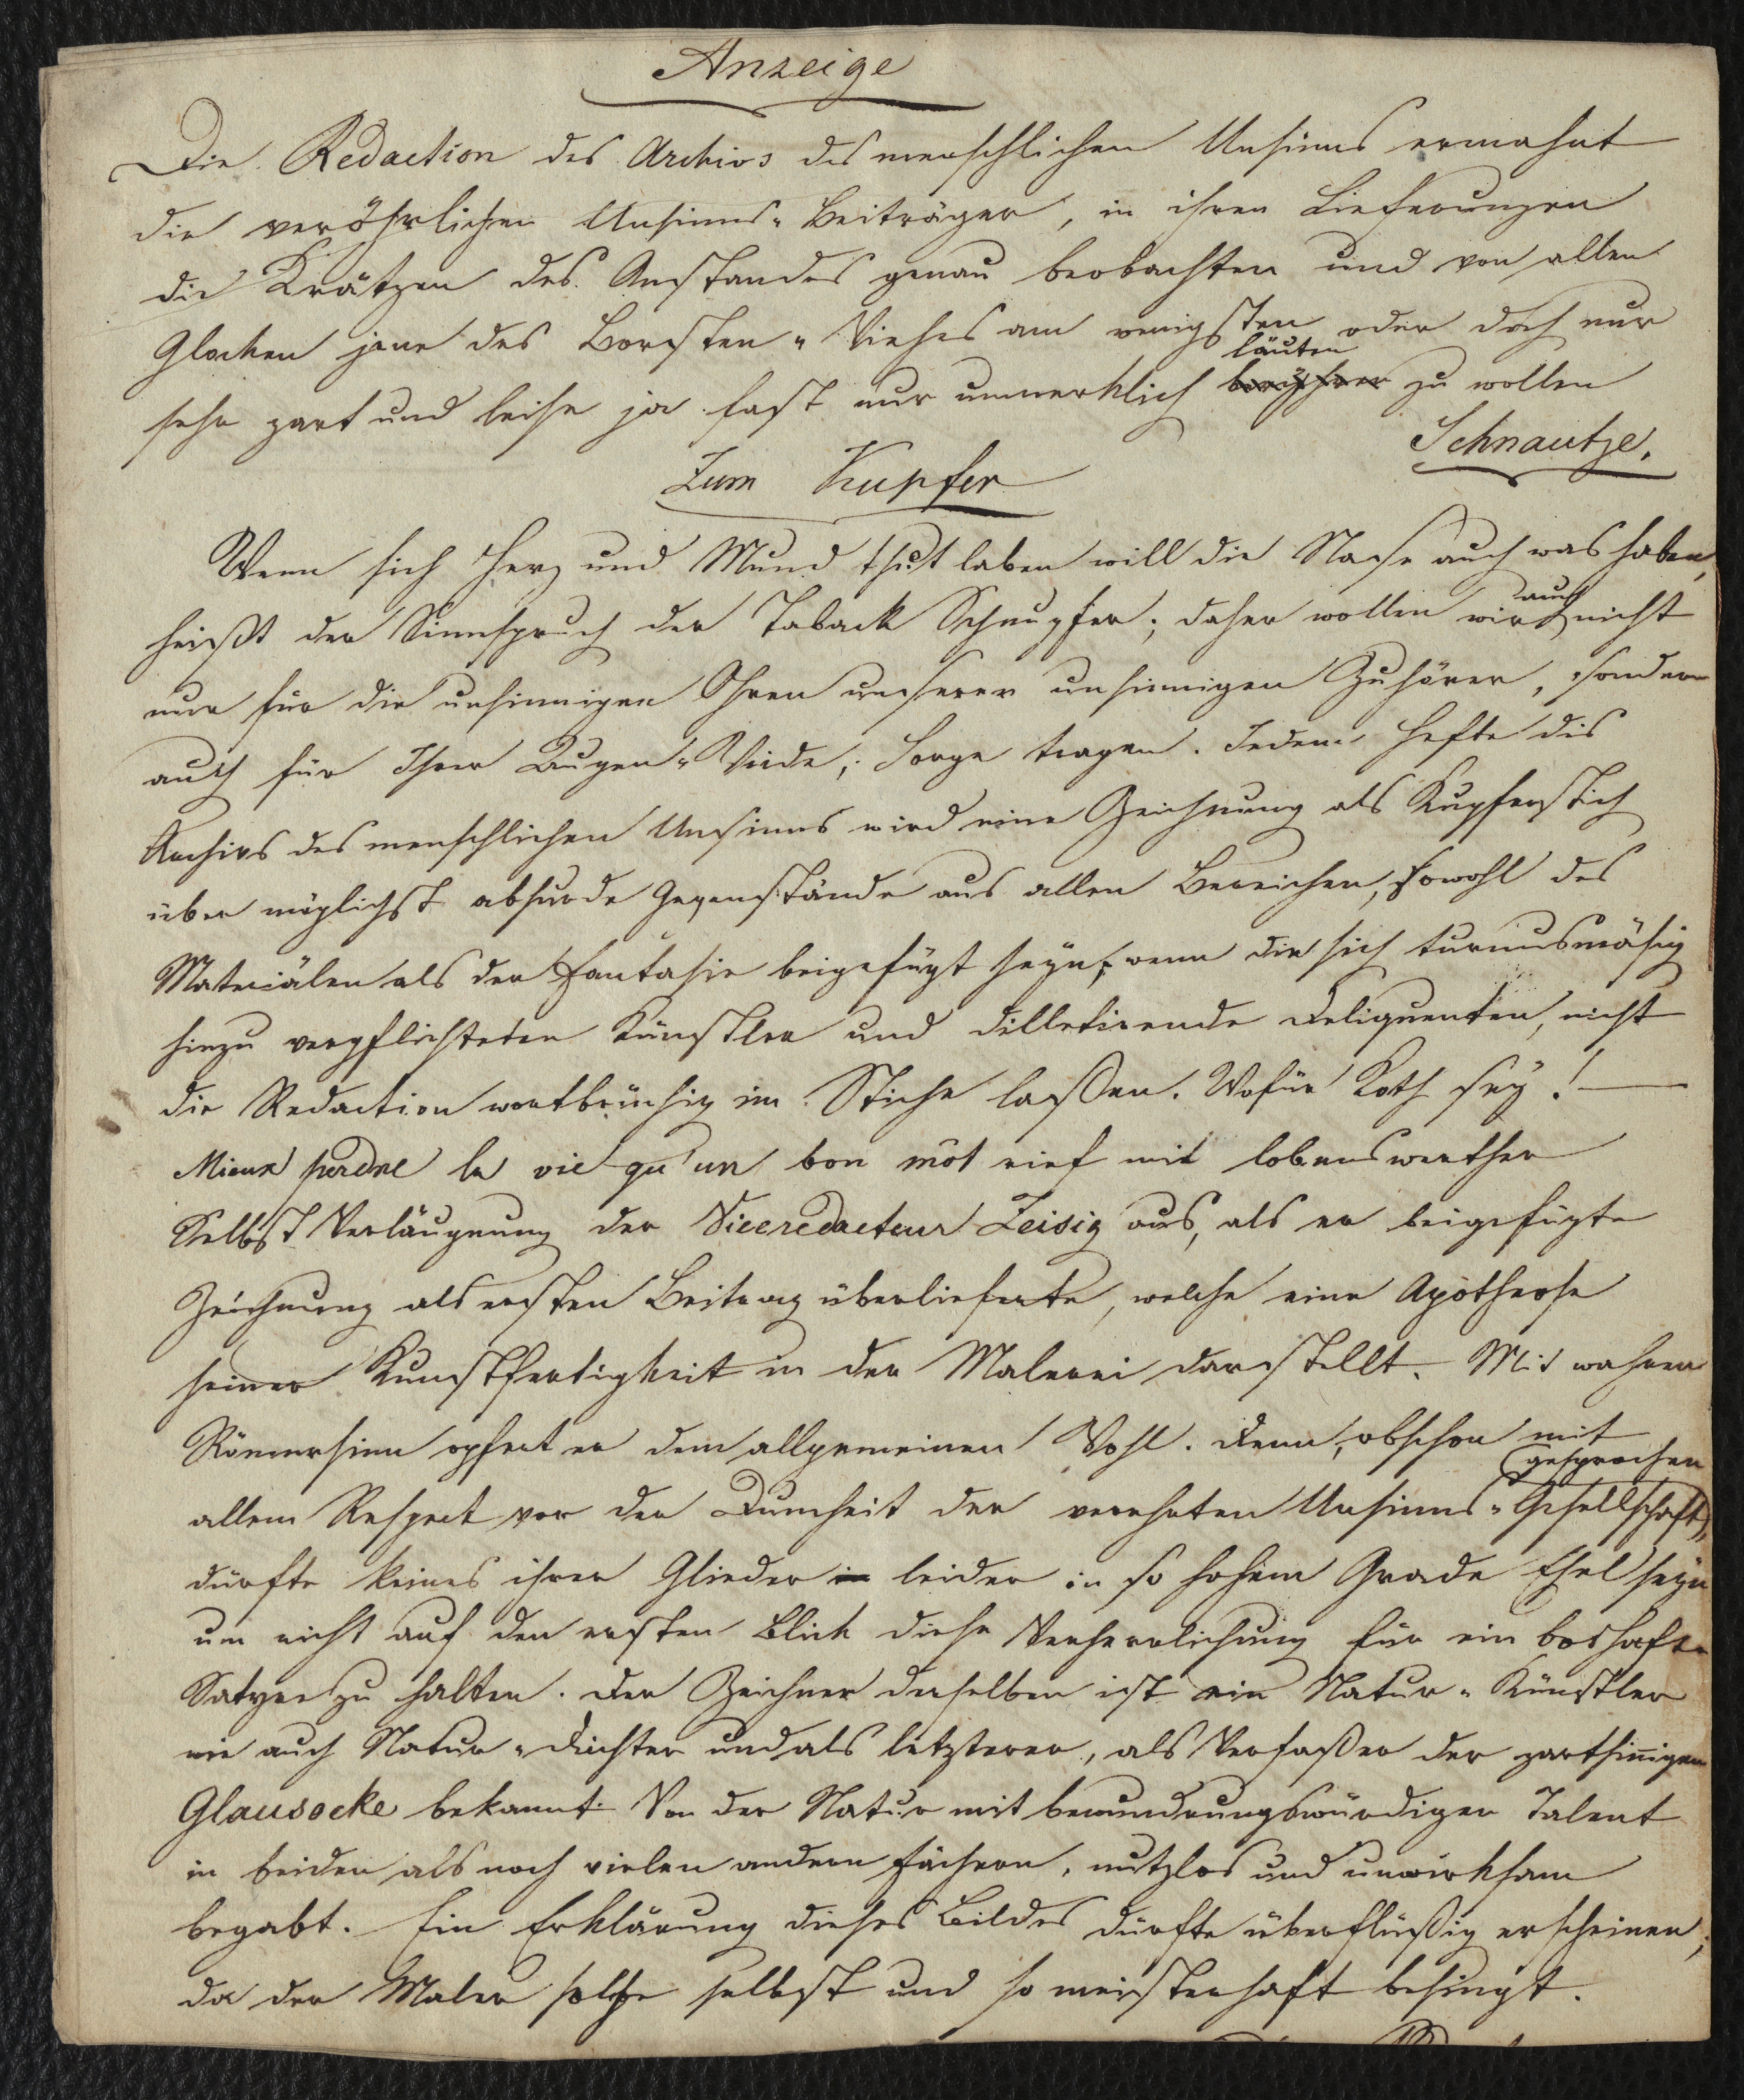 Anzeige
Die Redaction des Archivs des menschlichen Unsinns ermahnt
die veröhrlichen Unsinns-Beiträger, in ihren Lieferungen
die Krätzen des Anstandes genau beobachten und von allen
Glocken jene des Borsten-Viehes am wenigsten oder doch nur
läuten
sehr zart und leise ja fast nur unmerklich berühren zu wollen
Schnautze.
Zum Kupfer
Wenn sich Herz und Mund thut laben will die Nase auch was haben,
auch
heißt der Sinnspruch der Taback Schnupfer; daher wollen wir nicht
nur für die unsinnigen Ohren unserer unsinnigen Zuhörer, sondern
auch für Ihrer Augen-Weide, Sorge tragen. Jedem Hefte des
Archivs des menschlichen Unsinns wird eine Zeichnung als Kupferstich
über möglichst absurde Gegenstände aus allen Bereichen, sowohl des
Materiälen als der Fantasie beigefügt seyn, wenn die sich turnusmäßig
hinzu verpflichteten Künstler und dilletirende Deliquenten, nicht
die Redaction wortbrüchig im Stiche laßen. Wofür Koth sey! —
Mieux perdre la vie qu'un bon môt rief mit lobenswerther
Selbst Verläugnung der Viceredacteur Zeisig aus, als er beigefügte
Zeichnung als ersten Beitrag überlieferte, welche eine Apotheose
seiner Kunstfertigkeit in der Malerei darstellt. Mit wahrem
Römersinn opfert er dem allgemeinen Wohl. Denn, obschon mit
gesprochen
allem Respect vor der Dumheit der verehrten Unsinns-Gesellschaft,
dürfte keines ihrer Glieder in leider in so hohem Grade Esel seyn
um nicht auf den ersten Blick diese Verherrlichung für ein boshafte
Satyre zu halten. Der Zeichner derselben ist ein Natur-Künstler
wie auch Natur-Dichter und als letzterer, als Verfaßer der zartsinnigen
Glausocke bekannt. Von der Natur mit bewundrungswürdigen Talent
in beiden als noch vielen andern Fächern, nutzlos und unwirksam
begabt. Ein Erklärung dieses Bildes dürfte überflüßig erscheinen,
da der Maler solche selbst und so meisterhaft besingt.